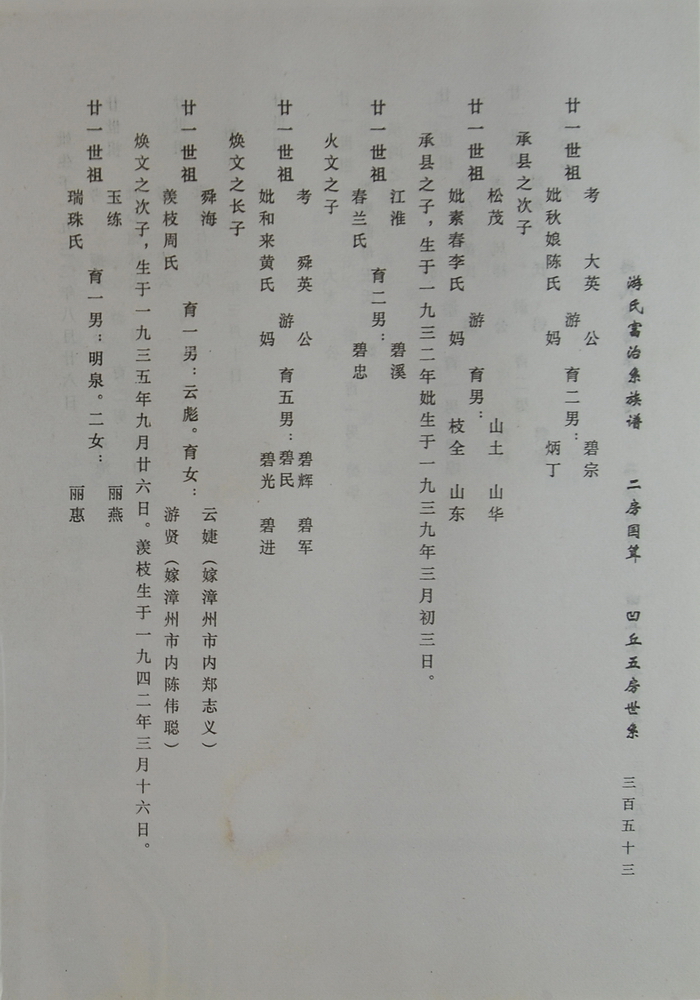 游氏富治系族谱 二房国茸 凹丘五房世系 三百五十三
考 大英 公 碧宗
廿一世祖 游 育二男：
妣秋娘陈氏 妈 炳丁
承县之次子
松茂 山土 山华
廿一世祖 游 育男：
妣素春李氏 妈 枝全 山东
承县之子，生于一九三二年妣生于一九三九年三月初三日。
江淮 碧溪
廿一世祖 育二男：
春兰氏 碧忠
火文之子
考 舜英 公 碧辉 碧军
廿一世祖 游 育五男：碧民
妣和来黄氏 妈 碧光 碧进
焕文之长子
舜海 云婕（嫁漳州市内郑志义）
廿一世祖 育一男：云彪。育女：
羡枝周氏 游贤（嫁漳州市内陈伟聪）
焕文之次子，生于一九三五年九月廿六日。羡枝生于一九四二年三月十六日。
玉练 丽燕
廿一世祖 育一男：明泉。二女：
瑞珠氏 丽惠